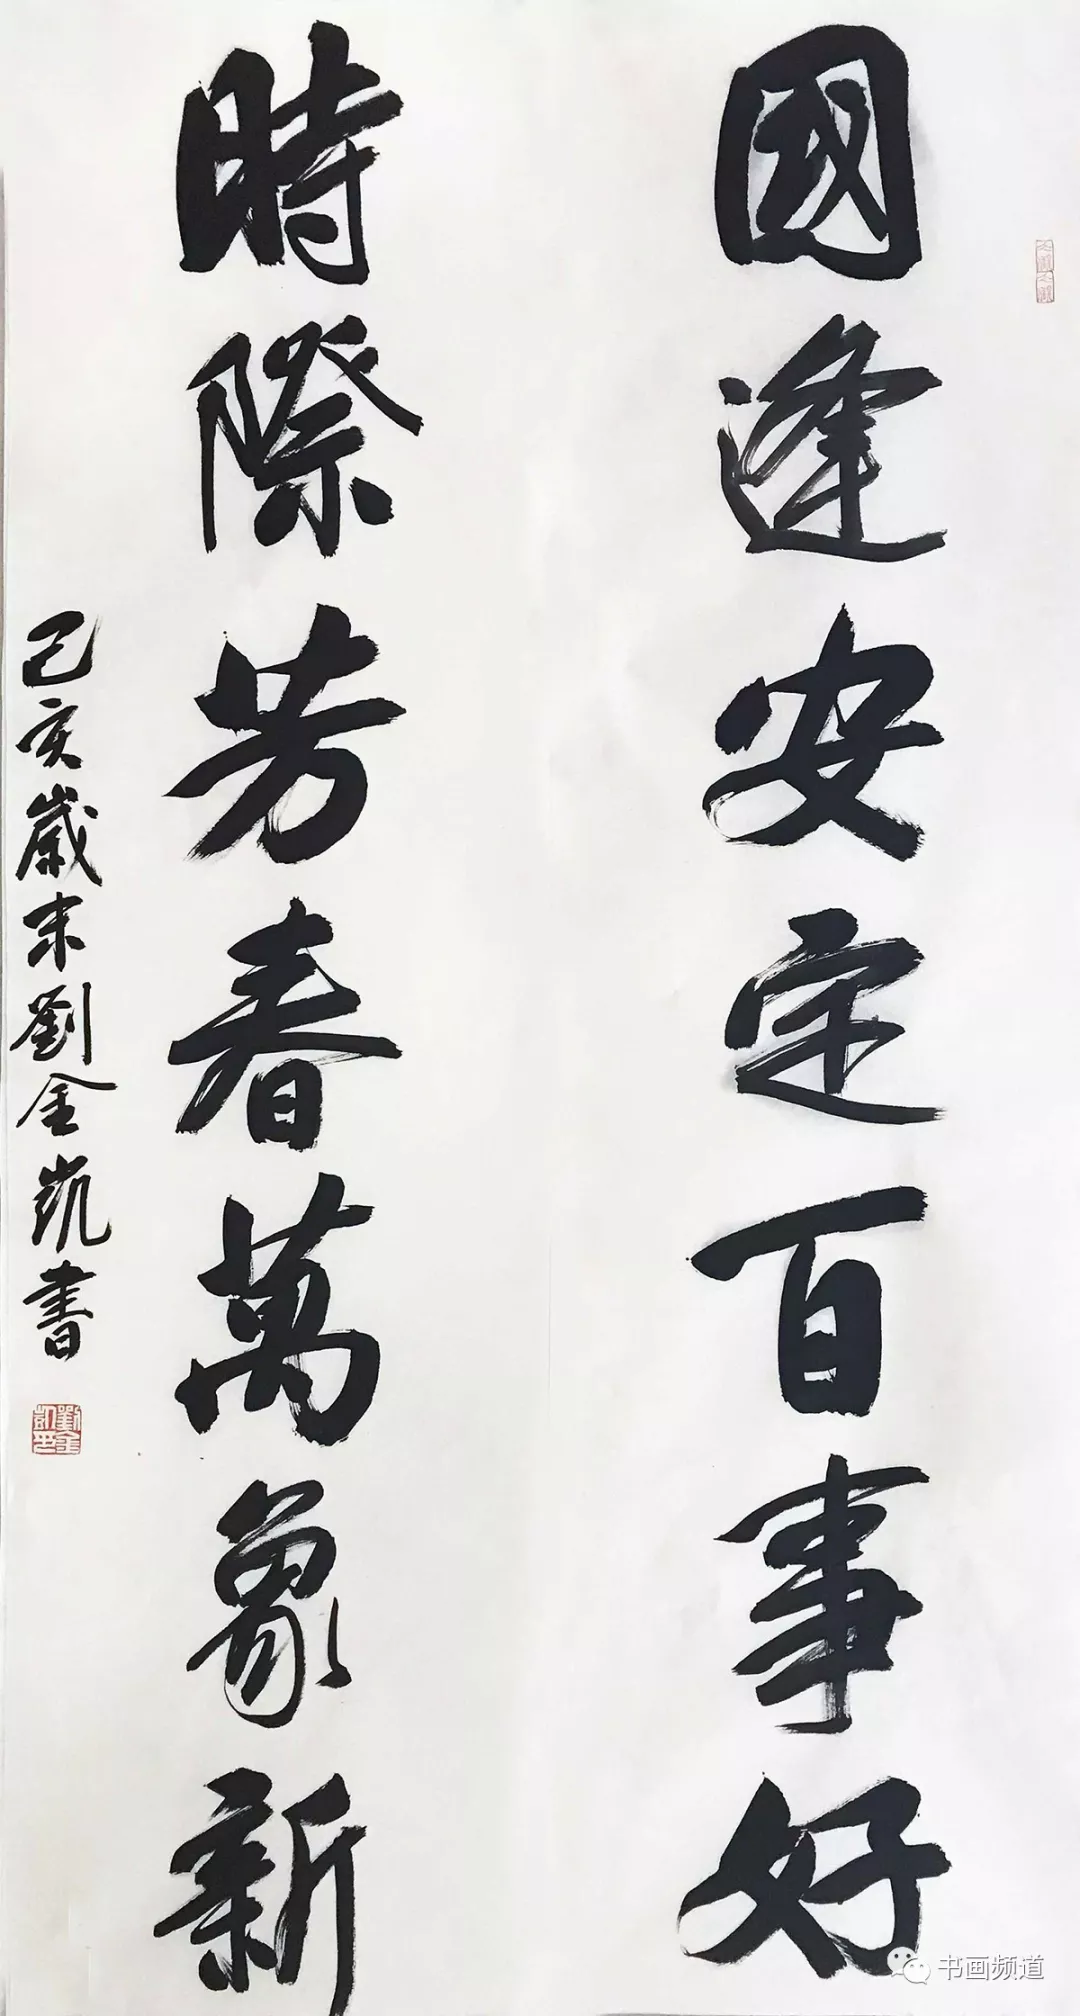 國逢安定百事好
時際芳春萬象新
己亥歲末劉金凱書
书画频道